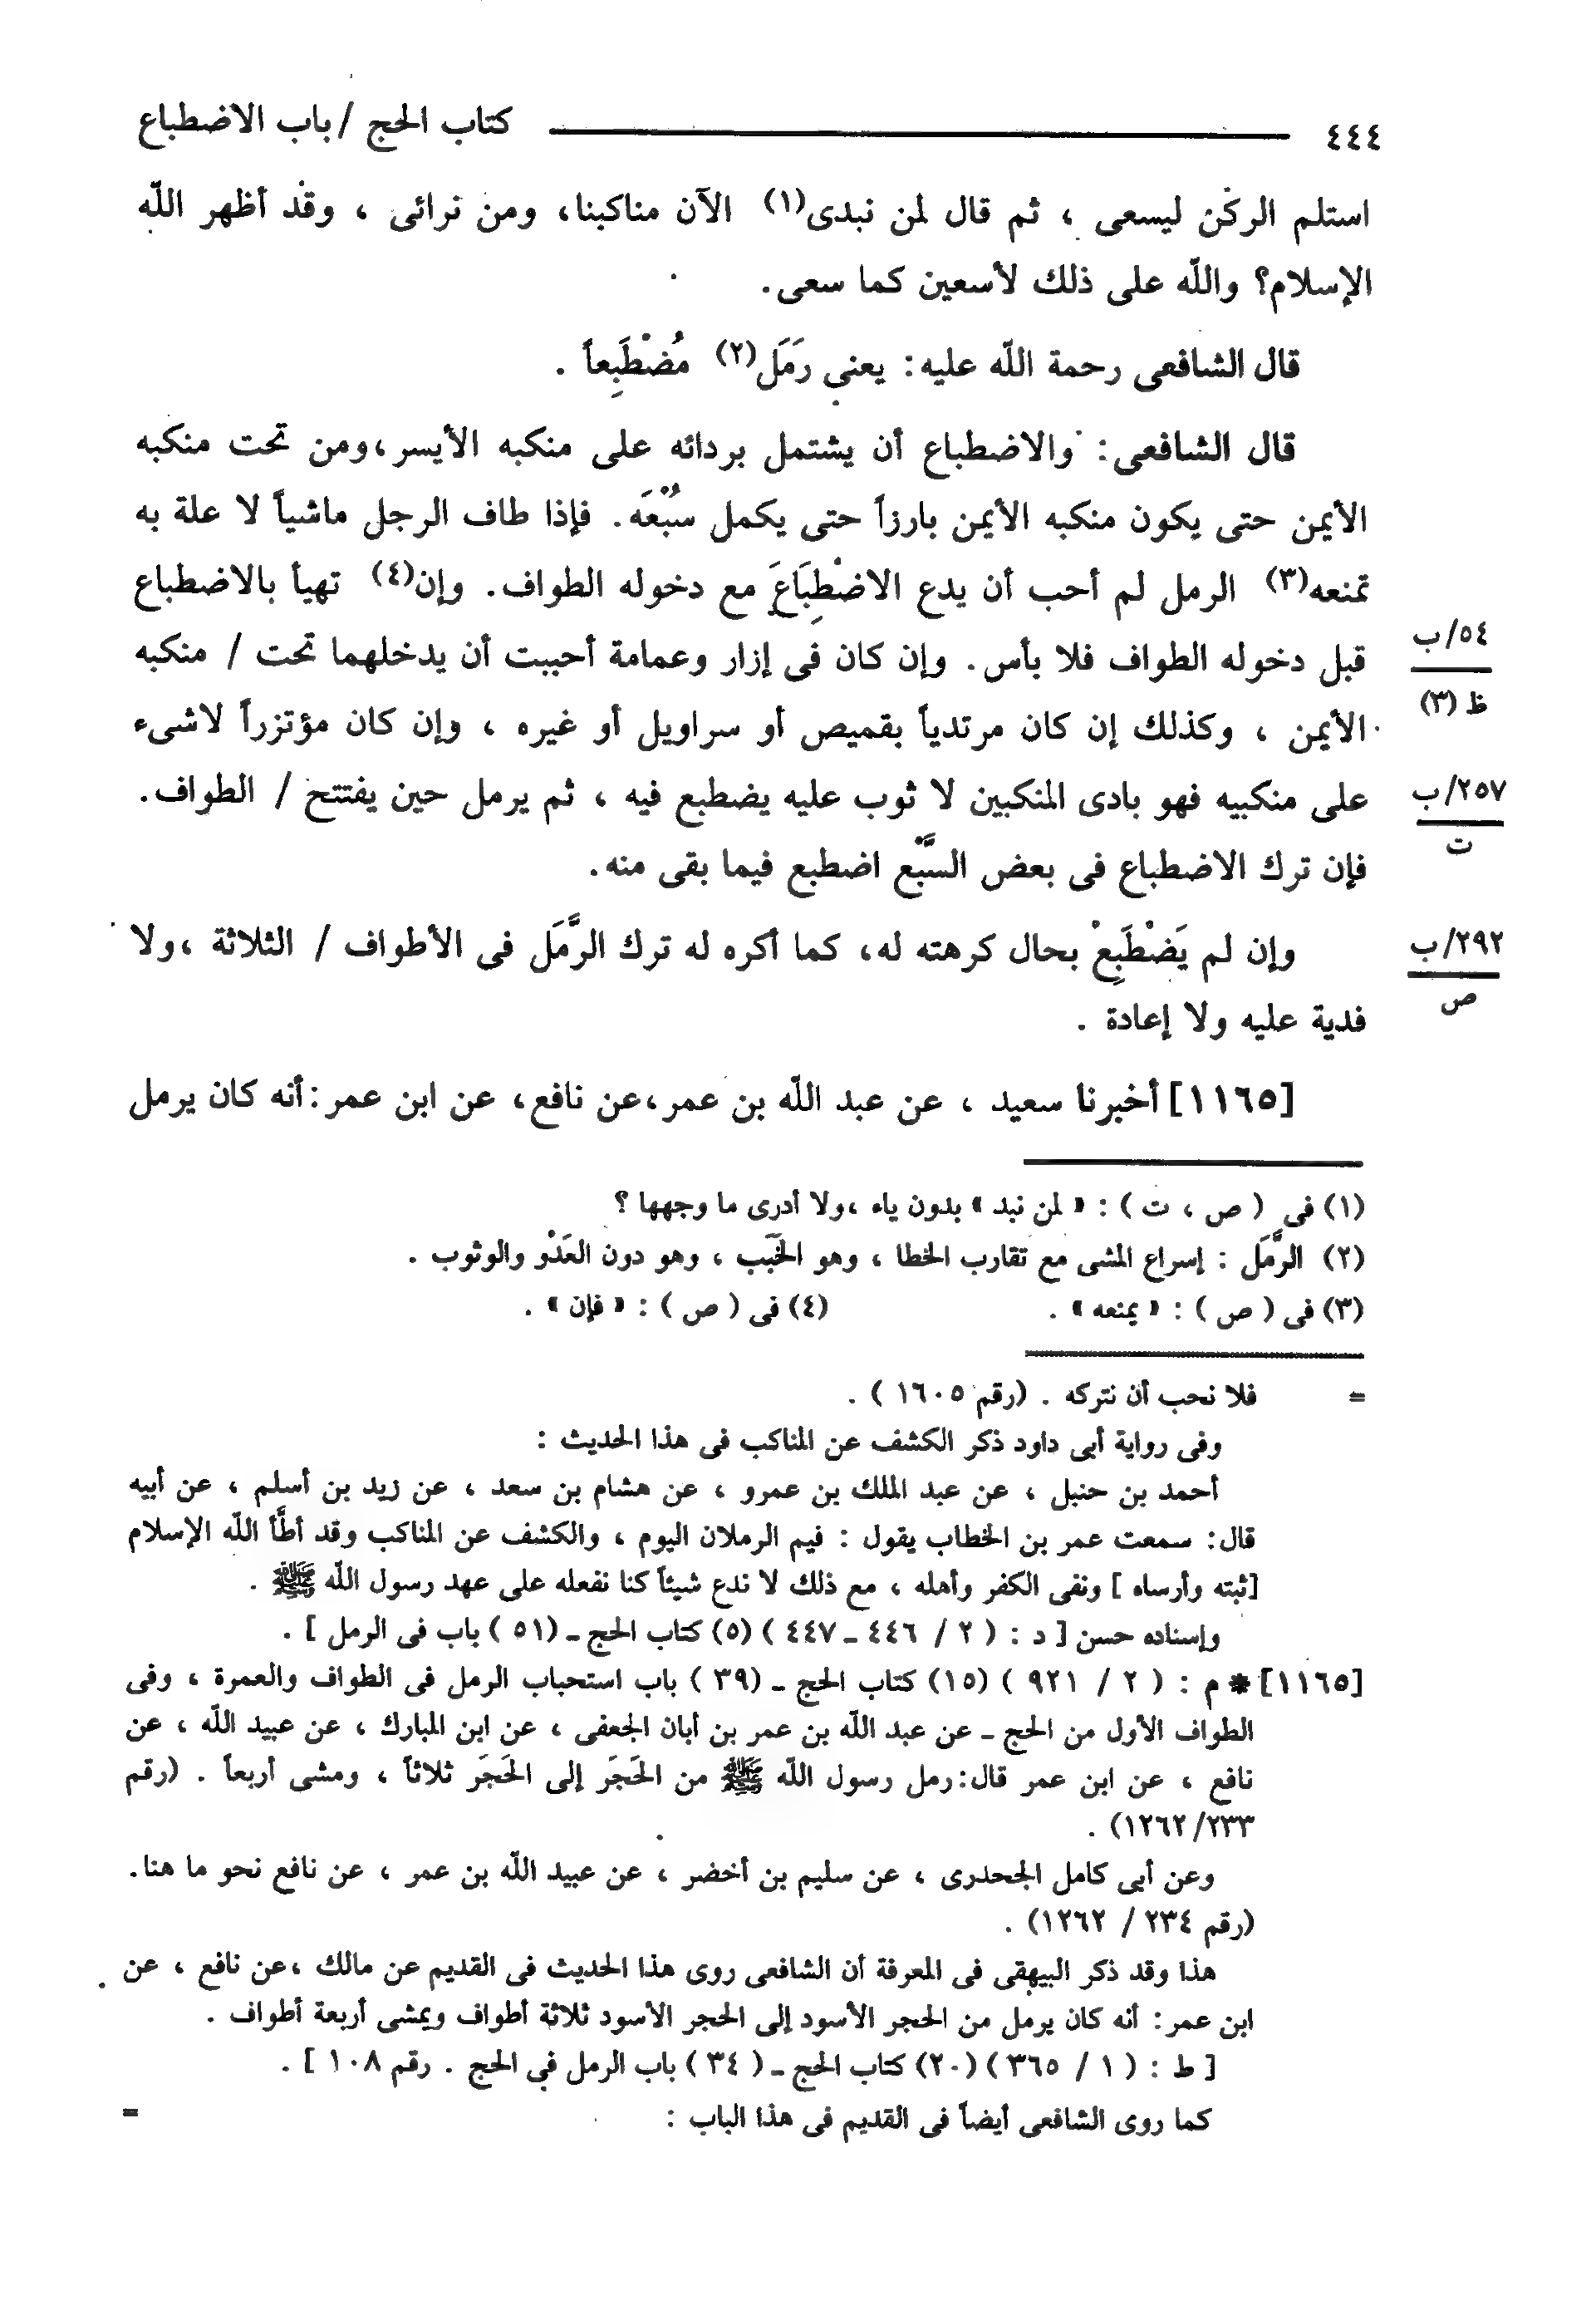 ٤٤٤ كتاب الحج / باب الاضطباع
استلم الركن ليسعى ، ثم قال لمن نبدى(١) الآن مناكبنا، ومن نرائى ، وقد أظهر اللّه
الإسلام؟ واللّه على ذلك لأسعين كما سعى.
قال الشافعى رحمة اللّه عليه: يعنى رَمَل(٢) مُضْطَبِعاً .
قال الشافعى: والاضطباع أن يشتمل بردائه على منكبه الأيسر،ومن تحت منكبه
الأيمن حتى يكون منكبه الأيمن بارزاً حتى يكمل سُبْعَه. فإذا طاف الرجل ماشياً لا علة به
تمنعه(٣) الرمل لم أحب أن يدع الاضْطِبَاعَ مع دخوله الطواف. وإن(٤) تهيأ بالاضطباع
قبل دخوله الطواف فلا بأس. وإن كان فى إزار وعمامة أحببت أن يدخلهما تحت / منكبه
٥٤/ب
ظ (٣)
الأيمن ، وكذلك إن كان مرتدياً بقميص أو سراويل أو غيره ، وإن كان مؤتزراً لاشىء
على منكبيه فهو بادى المنكبين لا ثوب عليه يضطبع فيه ، ثم يرمل حين يفتتح / الطواف.
٢٥٧/ب
ت
فإن ترك الاضطباع فى بعض السَّبْع اضطبع فيما بقى منه.
وإن لم يَضْطَبِعْ بحال كرهته له، كما أكره له ترك الرَّمَل فى الأطواف / الثلاثة ،ولا
٢٩٢/ب
ص
فدية عليه ولا إعادة .
[١١٦٥] أخبرنا سعيد ، عن عبد اللّه بن عمر،عن نافع، عن ابن عمر:أنه كان يرمل
(١) فى ( ص ، ت ) : « لمن نبد » بدون ياء ،ولا أدرى ما وجهها ؟
(٢) الرَّمَل : إسراع المشى مع تقارب الخطا ، وهو الخَبَب ، وهو دون العَدْو والوثوب .
(٣) فى ( ص ) : « يمنعه » . (٤) فى ( ص ) : « فإن » .
= فلا نحب أن نتركه . (رقم ١٦٠٥ ) .
وفى رواية أبى داود ذكر الكشف عن المناكب فى هذا الحديث :
أحمد بن حنبل ، عن عبد الملك بن عمرو ، عن هشام بن سعد ، عن زيد بن أسلم ، عن أبيه
قال: سمعت عمر بن الخطاب يقول : فيم الرملان اليوم ، والكشف عن المناكب وقد أطَّأ اللّه الإسلام
[ثبته وأرساه ] ونفى الكفر وأهله ، مع ذلك لا ندع شيئاً كنا نفعله على عهد رسول اللّه ﷺ .
وإسناده حسن [ د : ( ٢ / ٤٤٦ ـ ٤٤٧ ) (٥) كتاب الحج ـ (٥١ ) باب فى الرمل ] .
[١١٦٥] * م : ( ٢ / ٩٢١ ) (١٥) كتاب الحج ـ (٣٩ ) باب استحباب الرمل فى الطواف والعمرة ، وفى
الطواف الأول من الحج ـ عن عبد اللّه بن عمر بن أبان الجعفى ، عن ابن المبارك ، عن عبيد اللّه ، عن
نافع ، عن ابن عمر قال:رمل رسول اللّه ﷺ من الحَجَر إلى الحَجَر ثلاثاً ، ومشى أربعاً . (رقم
٢٣٣/ ١٢٦٢) .
وعن أبى كامل الجحدرى ، عن سليم بن أخضر ، عن عبيد اللّه بن عمر ، عن نافع نحو ما هنا.
(رقم ٢٣٤ / ١٢٦٢) .
هذا وقد ذكر البيهقى فى المعرفة أن الشافعى روى هذا الحديث فى القديم عن مالك ،عن نافع ، عن
ابن عمر: أنه كان يرمل من الحجر الأسود إلى الحجر الأسود ثلاثة أطواف ويمشى أربعة أطواف .
[ ط : ( ١ / ٣٦٥ ) (٢٠) كتاب الحج ـ ( ٣٤ ) باب الرمل في الحج . رقم ١٠٨ ] .
كما روى الشافعى أيضاً فى القديم فى هذا الباب : =